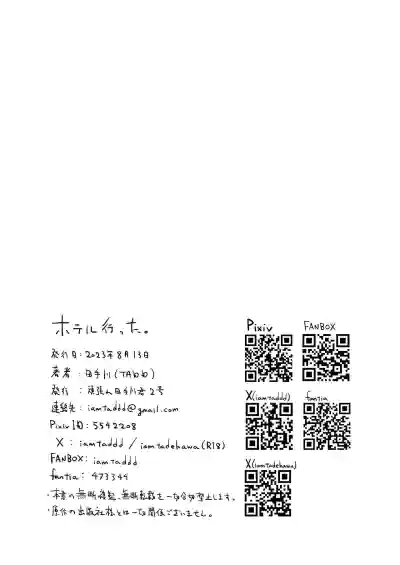 ホテル行った。
発行日：2023年8月13日
著者：田手川(TAddd)
発行：頑張れ田手川君2号
連絡先：iamtaddd@gmail.com
Pixiv ID：5542208
X：iamtaddd / iamtadehawa(R18)
FANBOX：iamtaddd
fantia：473344
・本書の無断複製、無断転載を一切禁止します。
・原作の出版社様とは一切関係ございません。
Pixiv
FANBOX
X(iamtaddd)
fantia
X(iamtadehawa)